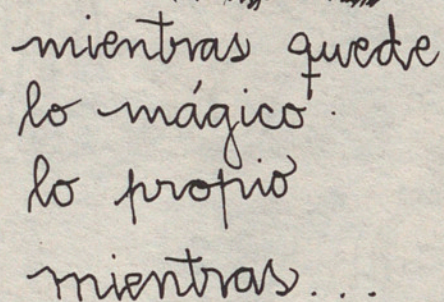 mientras quede
lo mágico
lo propio
mientras...